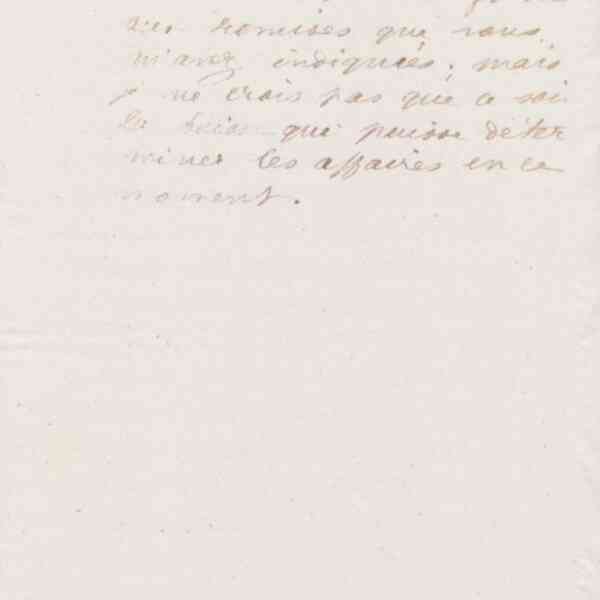 remises que vous
m'avez indiquées; mais
je ne crois pas que ce soit
la qui puisse déter
miner les affaires en ce
moment.